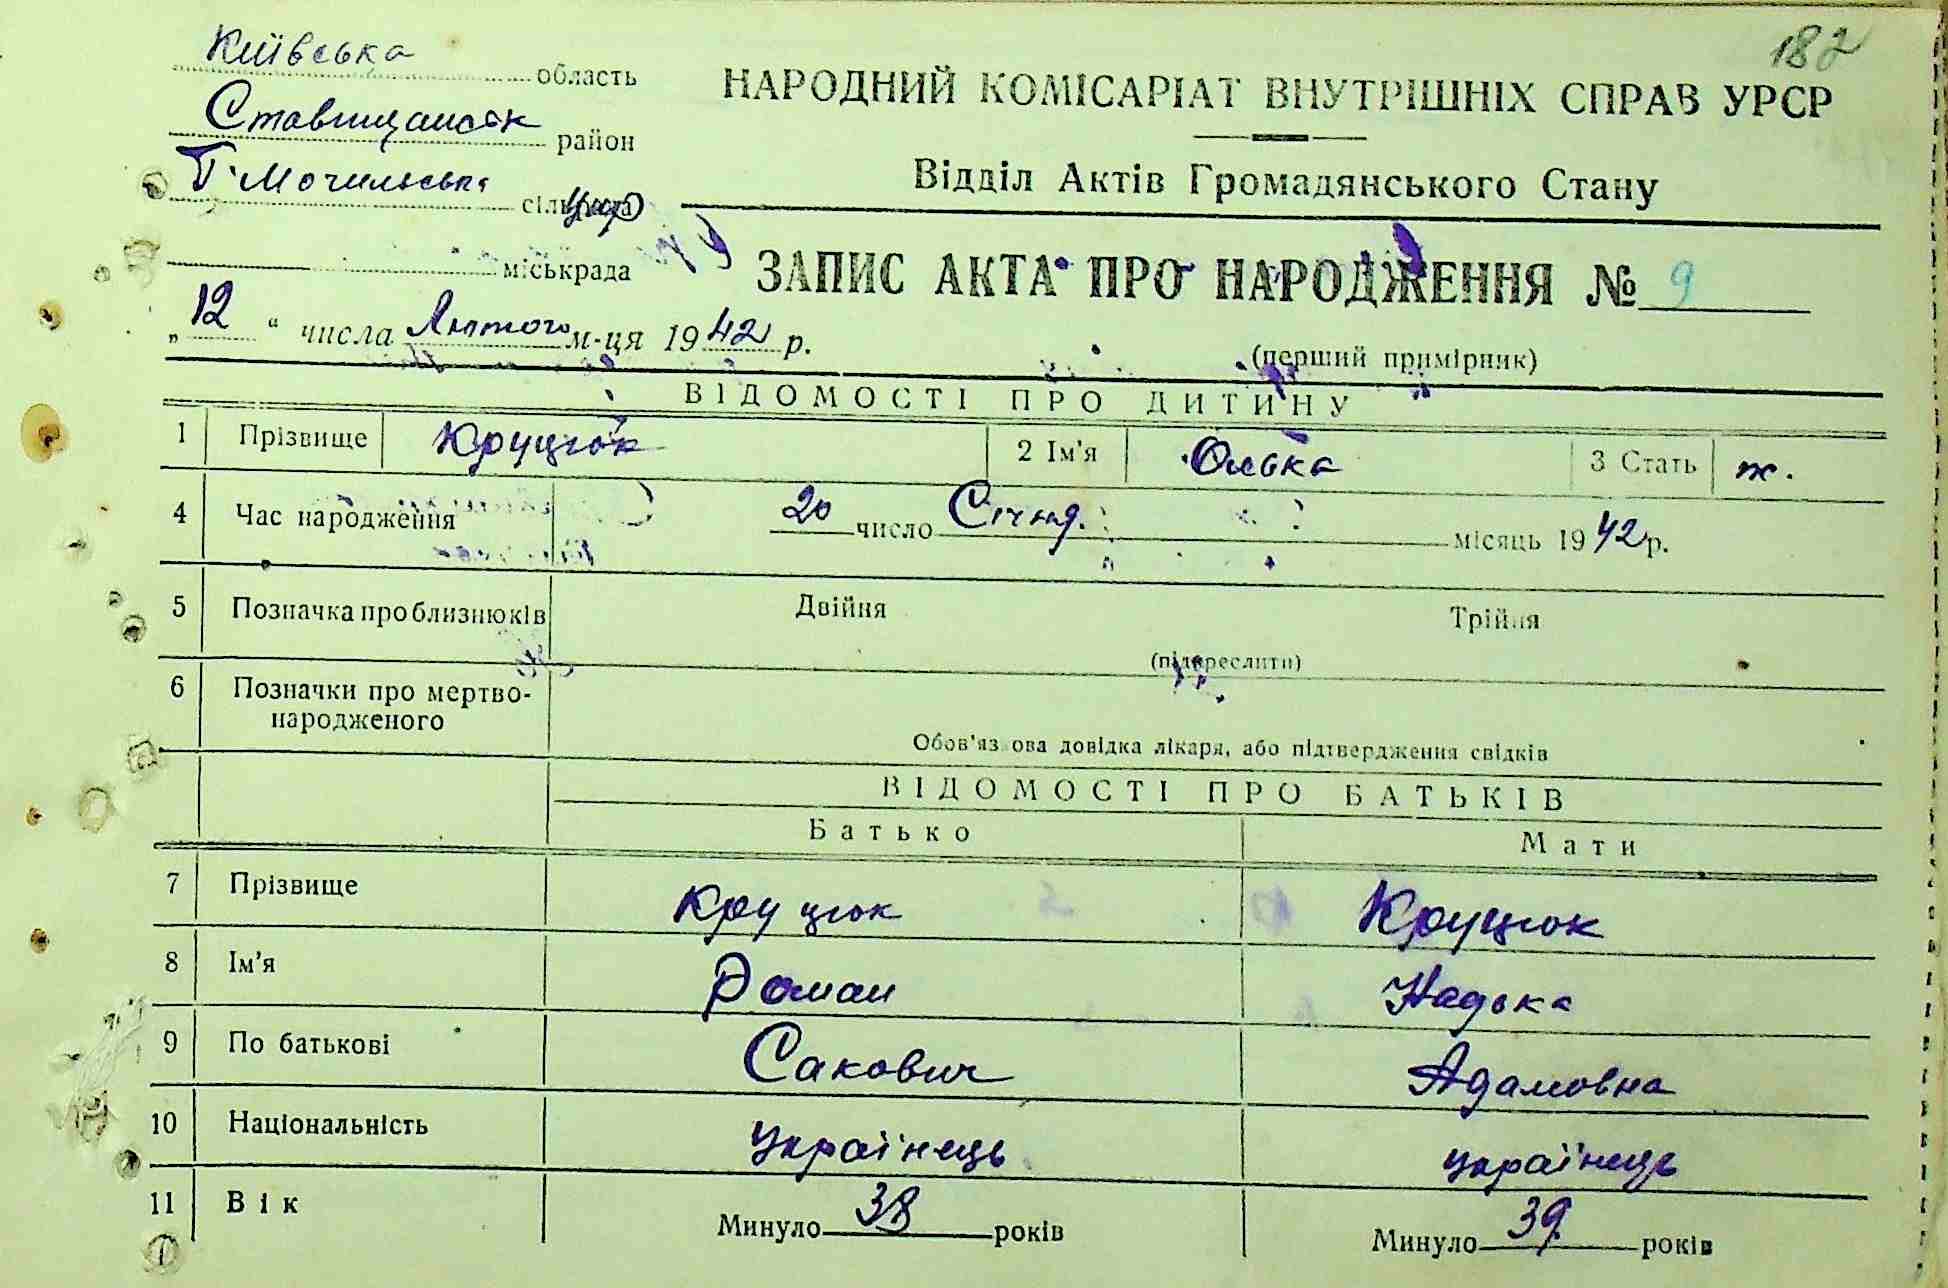 182
Київська область
Ставищанськ район
Г. Мочильська сільрада
міськрада
НАРОДНИЙ КОМІСАРІАТ ВНУТРІШНІХ СПРАВ УРСР
Відділ Актів Громадянського Стану
ЗАПИС АКТА ПРО НАРОДЖЕННЯ № 9
„12“ числа Лютого м-ця 1942 р.
(перший примірник)
ВІДОМОСТІ ПРО ДИТИНУ
1 Прізвище Круцюк 2 Ім'я Олька 3 Стать ж.
4 Час народження 20 число Січня місяць 1942 р.
5 Позначка про близнюків Двійня Трійня
(підкреслити)
6 Позначки про мертво-
народженого
Обов'язкова довідка лікаря, або підтвердження свідків
ВІДОМОСТІ ПРО БАТЬКІВ
Батько Мати
7 Прізвище Круцюк Круцюк
8 Ім'я Роман Надька
9 По батькові Сакович Адамовна
10 Національність українець українець
11 Вік Минуло 38 років Минуло 39 років